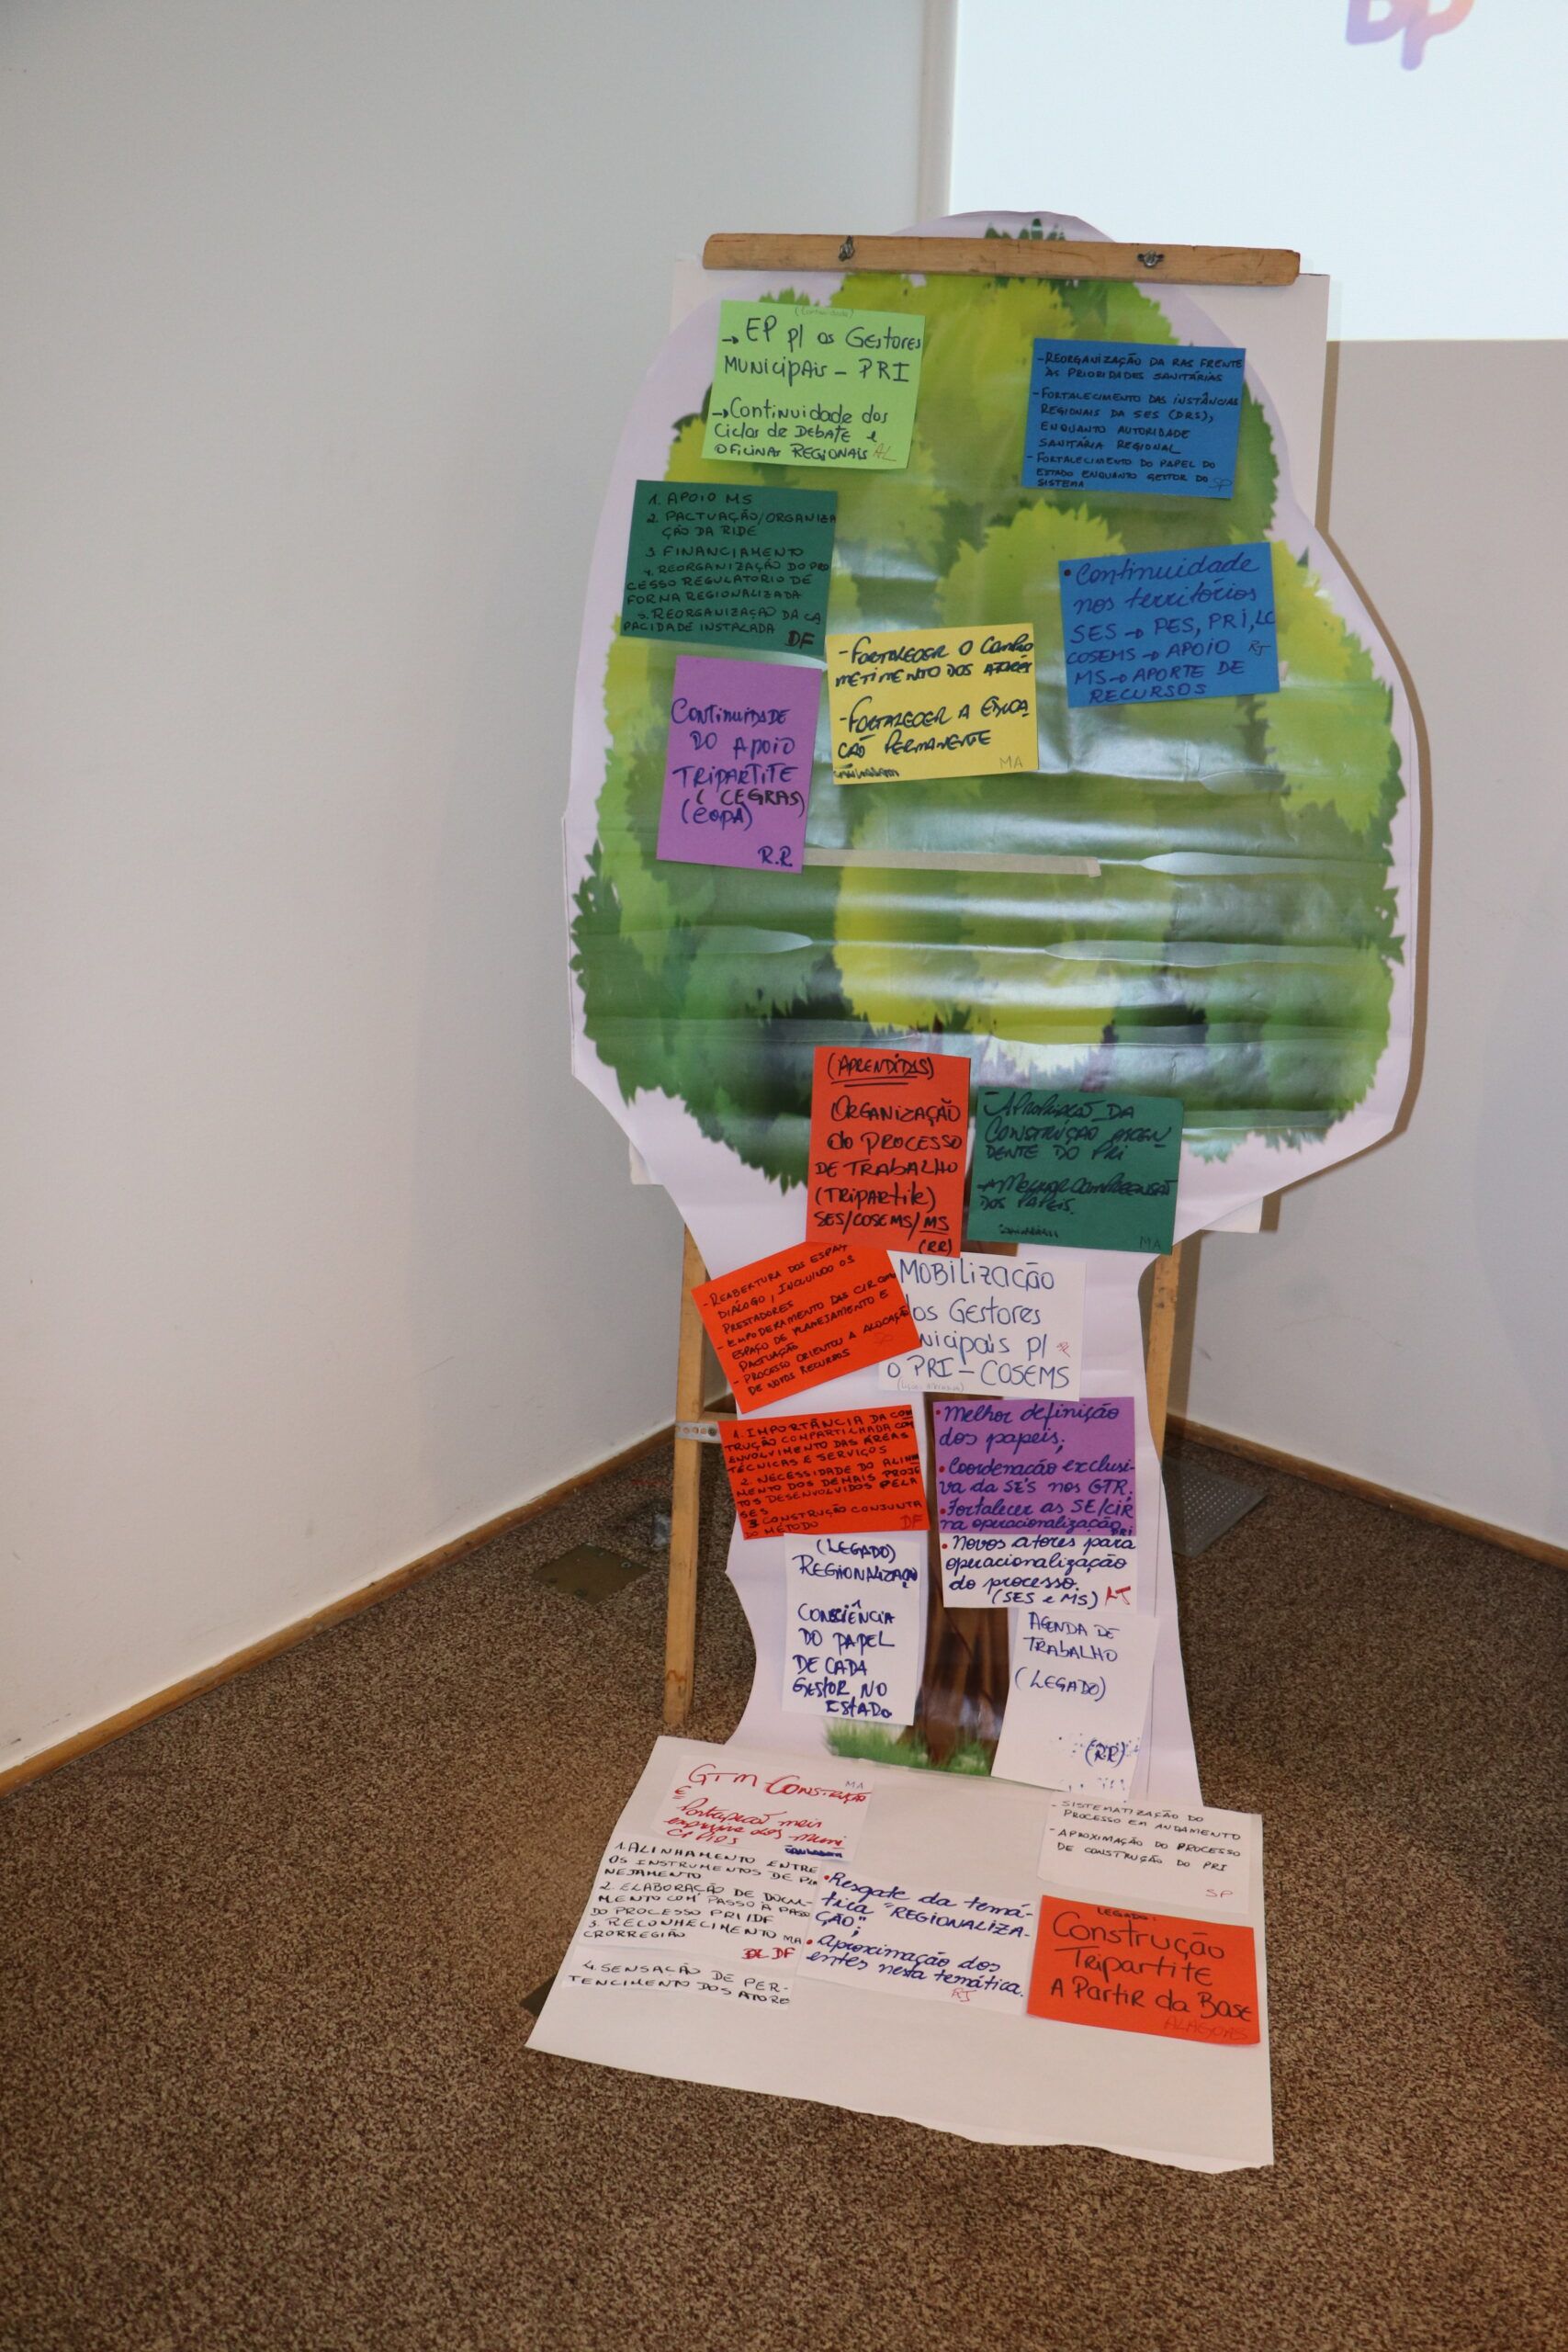 BP
(Continuidade)
→ EP p/ os Gestores
Municipais - PRI
→ Continuidade dos
Ciclos de Debate e
Oficinas Regionais AL
- REORGANIZAÇÃO DA RAS FRENTE
ÀS PRIORIDADES SANITÁRIAS
- FORTALECIMENTO DAS INSTÂNCIAS
REGIONAIS DA SES (DRS),
ENQUANTO AUTORIDADE
SANITÁRIA REGIONAL
- FORTALECIMENTO DO PAPEL DO
ESTADO ENQUANTO GESTOR DO
SISTEMA SP
1. APOIO MS
2. PACTUAÇÃO/ORGANIZA
ÇÃO DA RIDE
3. FINANCIAMENTO
4. REORGANIZAÇÃO DO PRO
CESSO REGULATÓRIO DE
FORMA REGIONALIZADA
5. REORGANIZAÇÃO DA CA
PACIDADE INSTALADA
DF
• Continuidade
nos territórios
SES → PES, PRI, LC
COSEMS → APOIO RJ
MS → APORTE DE
RECURSOS
- FORTALECER O COMPRO
METIMENTO DOS ATORES
- FORTALECER A EDUCA
ÇÃO PERMANENTE
MA
CONTINUIDADE
DO APOIO
TRIPARTITE
( CEGRAS)
R.R
(APRENDIDAS)
ORGANIZAÇÃO
do PROCESSO
DE TRABALHO
(TRIPARTITE)
SES/COSEMS/MS
(RR)
DA
CONSTRUÇÃO ASCEN
DENTE DO PRI
- MELHOR COMPREENSÃO
DOS PAPEIS.
MA
- REABERTURA DOS ESPAÇ
DIÁLOGO, INCLUINDO OS
PRESTADORES
- EMPODERAMENTO DAS CIR COM
ESPAÇO DE PLANEJAMENTO E
PACTUAÇÃO
- PROCESSO ORIENTOU A ALOCAÇÃ
DE NOVOS RECURSOS
SP
MOBILIZAÇÃO
dos Gestores
nicipais p/
O PRI - COSEMS
1. IMPORTÂNCIA DA CONS
TRUÇÃO COMPARTILHADA COM
ENVOLVIMENTO DAS ÁREAS
TÉCNICAS E SERVIÇOS
2. NECESSIDADE DO ALINHA
MENTO DOS DEMAIS PROJE
TOS DESENVOLVIDOS PELA
SES
3. CONSTRUÇÃO CONJUNTA
DO MÉTODO
DF
• Melhor definição
dos papeis;
• Coordenação exclusi-
va da SES nos GTR.
• Fortalecer as SE/CIR
na operacionalização PRI
• Novos atores para
operacionalização
do processo.
(SES e MS) RJ
(LEGADO)
REGIONALIZAÇÃO
CONSCIÊNCIA
DO PAPEL
DE CADA
GESTOR NO
ESTADO
AGENDA DE
TRABALHO
(LEGADO)
(RR)
GTM - CONSTRUÇÃO
MA
E
dos muni
CIPIOS
- SISTEMATIZAÇÃO DO
PROCESSO EM ANDAMENTO
- APROXIMAÇÃO DO PROCESSO
DE CONSTRUÇÃO DO PRI
SP
1. ALINHAMENTO ENTRE
OS INSTRUMENTOS DE PLA
NEJAMENTO
2. ELABORAÇÃO DE DOCU-
MENTO COM PASSO A PASSO
DO PROCESSO PRI/DF
3. RECONHECIMENTO MA
CRORREGIÃO
DF
4. SENSAÇÃO DE PER-
TENCIMENTO DOS ATORE
• Resgate da temá-
tica "REGIONALIZA-
ÇÃO";
• Aproximação dos
entes nesta temática.
RJ
LEGADO:
Construção
Tripartite
A Partir da Base
ALAGOAS